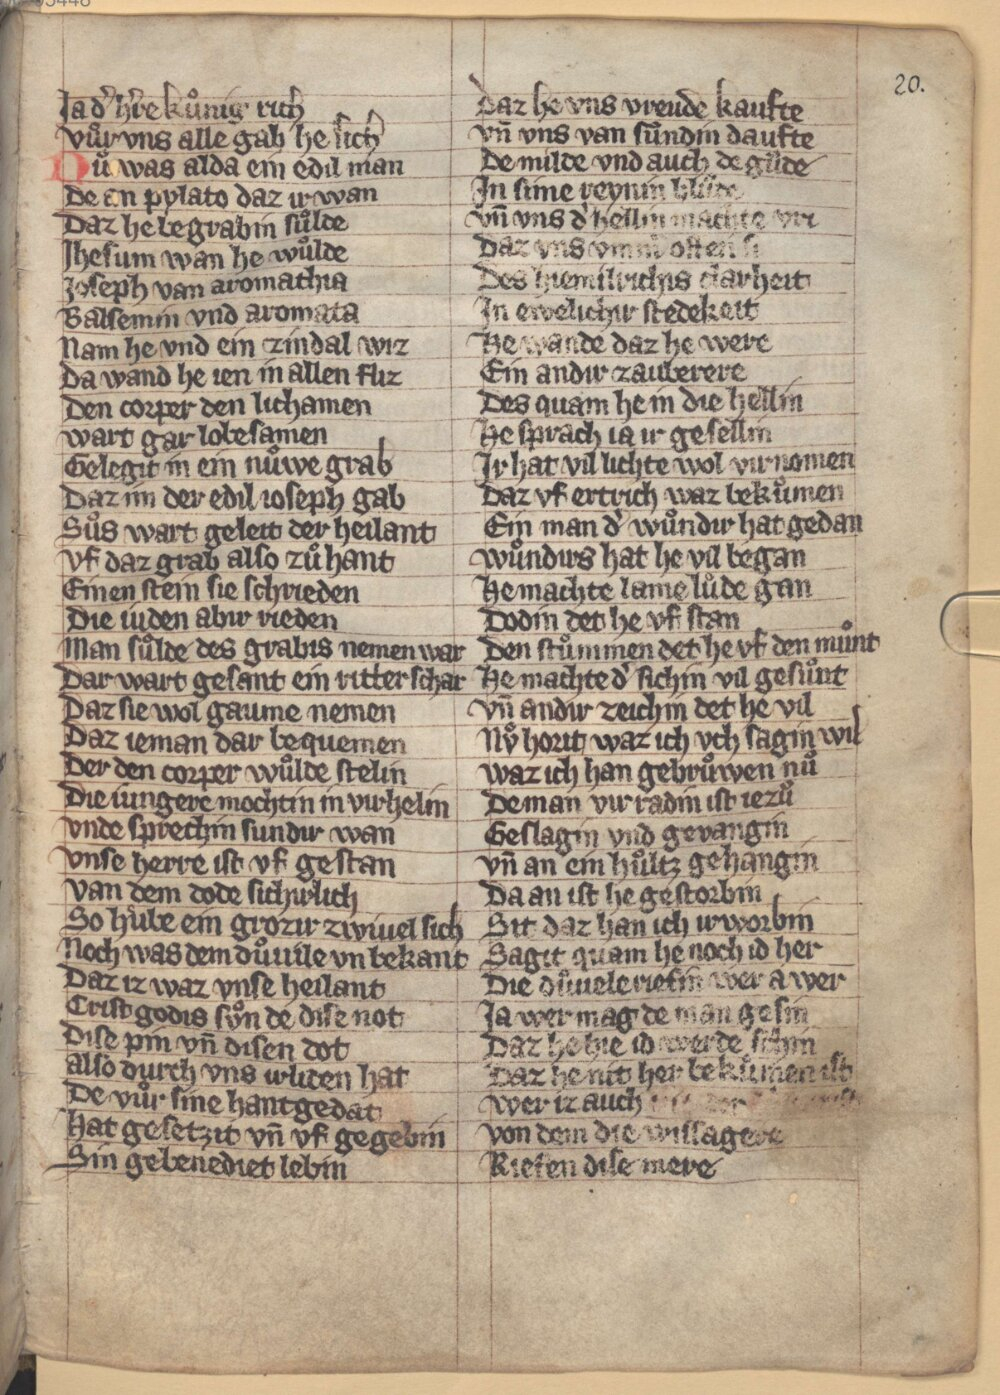 20.
Ja dˀ hˀre kůnig rich
vůr vns alle gab he sich
Nů was alda ein edil man
De an pylato daz irwan
Daz he begrabin sůlde
Jhesum wan he wůlde
Joseph van aromathia
Balsemin vnd aromata
Nam he vnd ein zindal wiz
Da wand he ien in allen fliz
Den corper den lichamen
wart gar lobesamen
Gelegit in ein nůwe grab
Daz im der edil ioseph gab
Sůs wart geleit der heilant
vf daz grab also zů hant
Einen stein sie schrieden
Die iuden abir rieden
Man sůlde des grabis nemen war
Dar wart gesant ein ritter schar
Daz sie wol gaume nemen
Daz ieman dar bequemen
Der den corper wůlde stelin
Die iungere mochtin in virhelin
vnde sprechin sundir wan
vnse herre ist vf gestan
van dem dode sichirlich
So hube ein grozir zwiuel sich
Noch was dem důuile vnbekant
Daz iz waz vnse heilant
Crist godis sůn de dise not
Dise pin vn̄ disen dot
also durch vns irliden hat
De vůr sine hantgedat
Hat gesetzit vn̄ vf gegebin
Sin gebenediet lebin
Daz he vns vreude kaufte
vn̄ vns van sůndin daufte
De milde vnd auch de gůde
In sime reynin
vn̄ vns dˀ hellin machte vri
Daz vns
Des hiemilrichis clarheit
In ewelichir stedekeit
He wande daz he were
Ein andir zauberere
Des quam he in die hellin
He sprach ia ir gesellin
Ir hat vil lichte wol virnomen
Daz vf ertrich waz bekůmen
Ein man dˀ wůndir hat gedan
wůndirs hat he vil began
He machte lame lůde gan
Dodin det he vf stan
Den stůmmen det he vf den můnt
He machte dˀ sichin vil gesůnt
vn̄ andir zeichin det he vil
Nů horit waz ich vch sagin wil
waz ich han gebrůwen nů
De man virradin ist iezů
Geslagin vnd gevangin
vn̄ an ein hůltz gehangin
Da an ist he gestorbin
Sit daz han ich irworbin
Sagit quam he noch id her
Die důuiele riefin wer a wer
Ja wer mag de man gesin
Daz he hie id werde schin
Daz he nit her bekůmen ist
wer iz auch
von dem die wissagere
Riefen dise mere